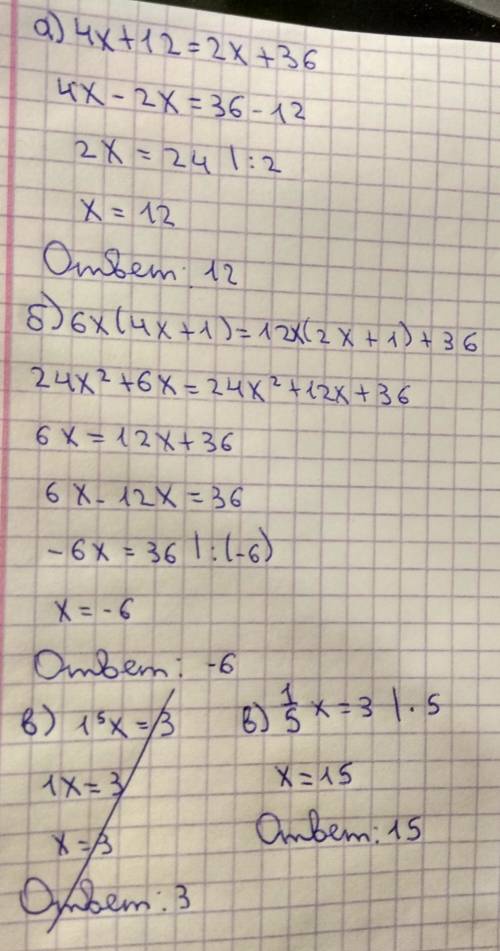 а) 4x+12=2x+36
4x-2x=36-12
2x=24 |:2
x=12
Ответ: 12
б) 6x(4x+1)=12x(2x+1)+36
24x²+6x=24x²+12x+36
6x=12x+36
6x-12x=36
-6x=36 |:(-6)
x=-6
Ответ: -6
в) 1⁵x=3
1x=3
x=3
Ответ: 3
в) 1/5 x=3 |·5
x=15
Ответ: 15